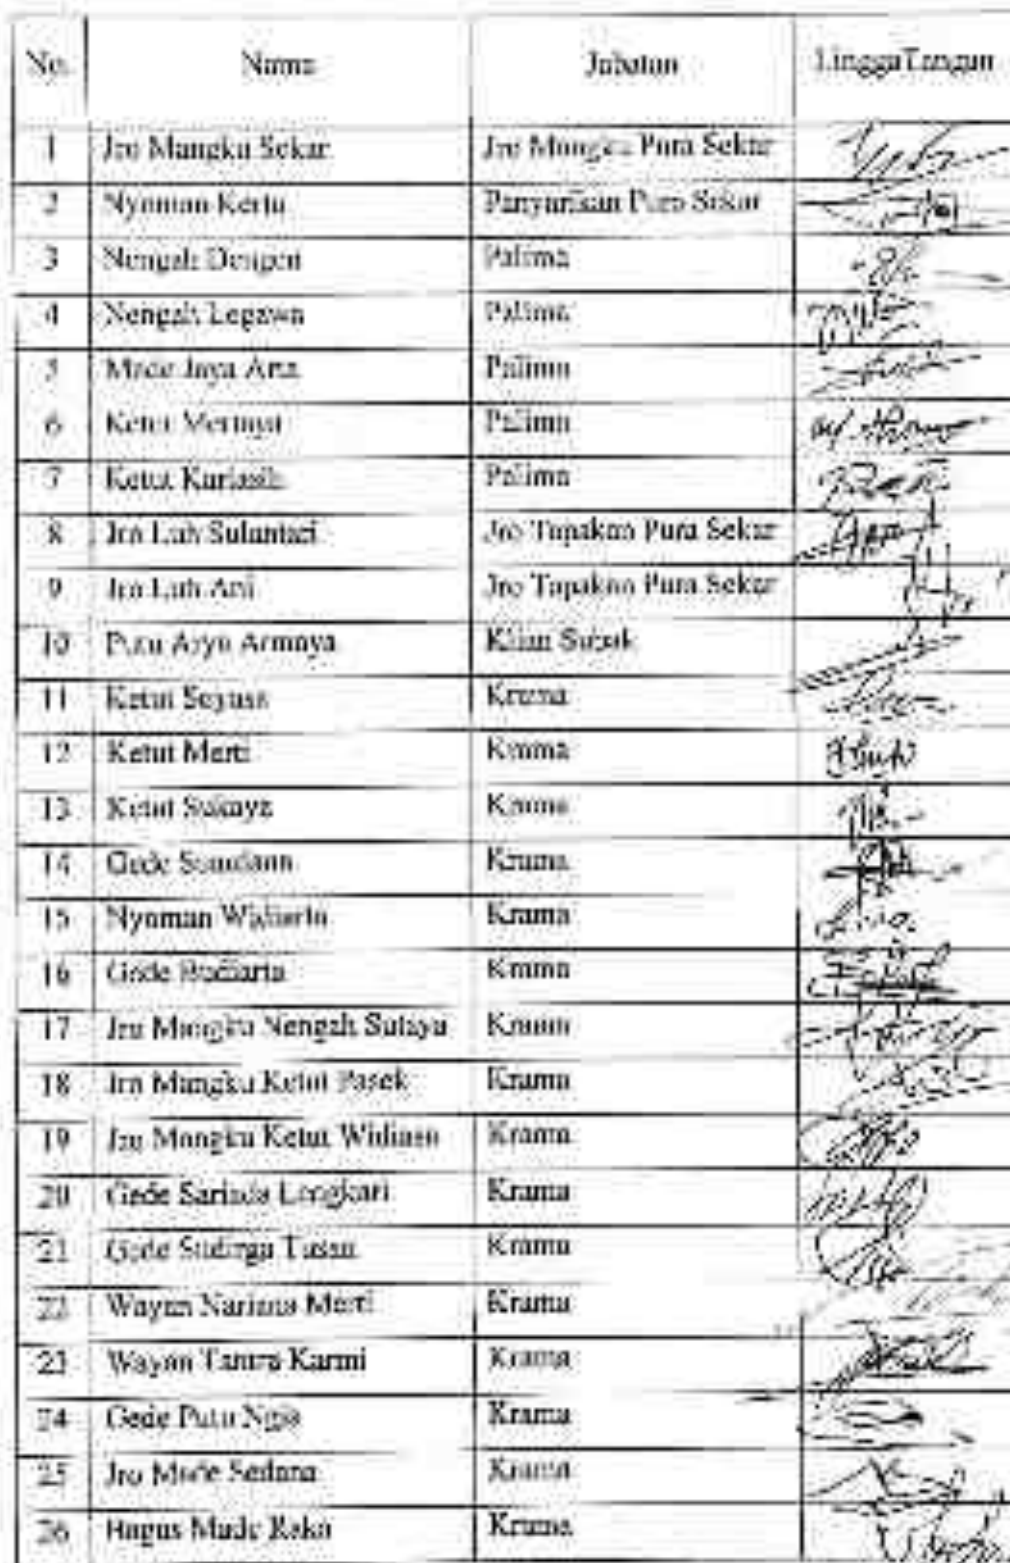 No. Nama Jabatan LinggaTangan
1 Jro Mangku Sekar Jro Mangku Pura Sekar
2 Nyoman Kerta Panyarikan Pura Sekar
3 Nengah Dengen Palima
4 Nengah Legawa Palima
5 Made Jaya Arta Palima
6 Ketut Mertaya Palima
7 Ketut Kariasih Palima
8 Jro Luh Sulantari Jro Tapakan Pura Sekar
9 Jro Luh Ani Jro Tapakan Pura Sekar
10 Putu Arya Armaya Klian Subak
11 Ketut Seyasa Krama
12 Ketut Merti Krama
13 Ketut Sukaya Krama
14 Gede Krama
15 Nyoman Widiarta Krama
16 Gede Budiarta Krama
17 Jro Mangku Nengah Sutaya Krama
18 Jro Mangku Ketut Pasek Krama
19 Jro Mangku Ketut Widiasa Krama
20 Gede Sariada Lengkari Krama
21 Gede Sudirga Tusan Krama
22 Wayan Nariana Merti Krama
23 Wayan Tantra Karmi Krama
24 Gede Putu Ngis Krama
25 Jro Made Sedana Krama
26 Bagus Made Raka Krama